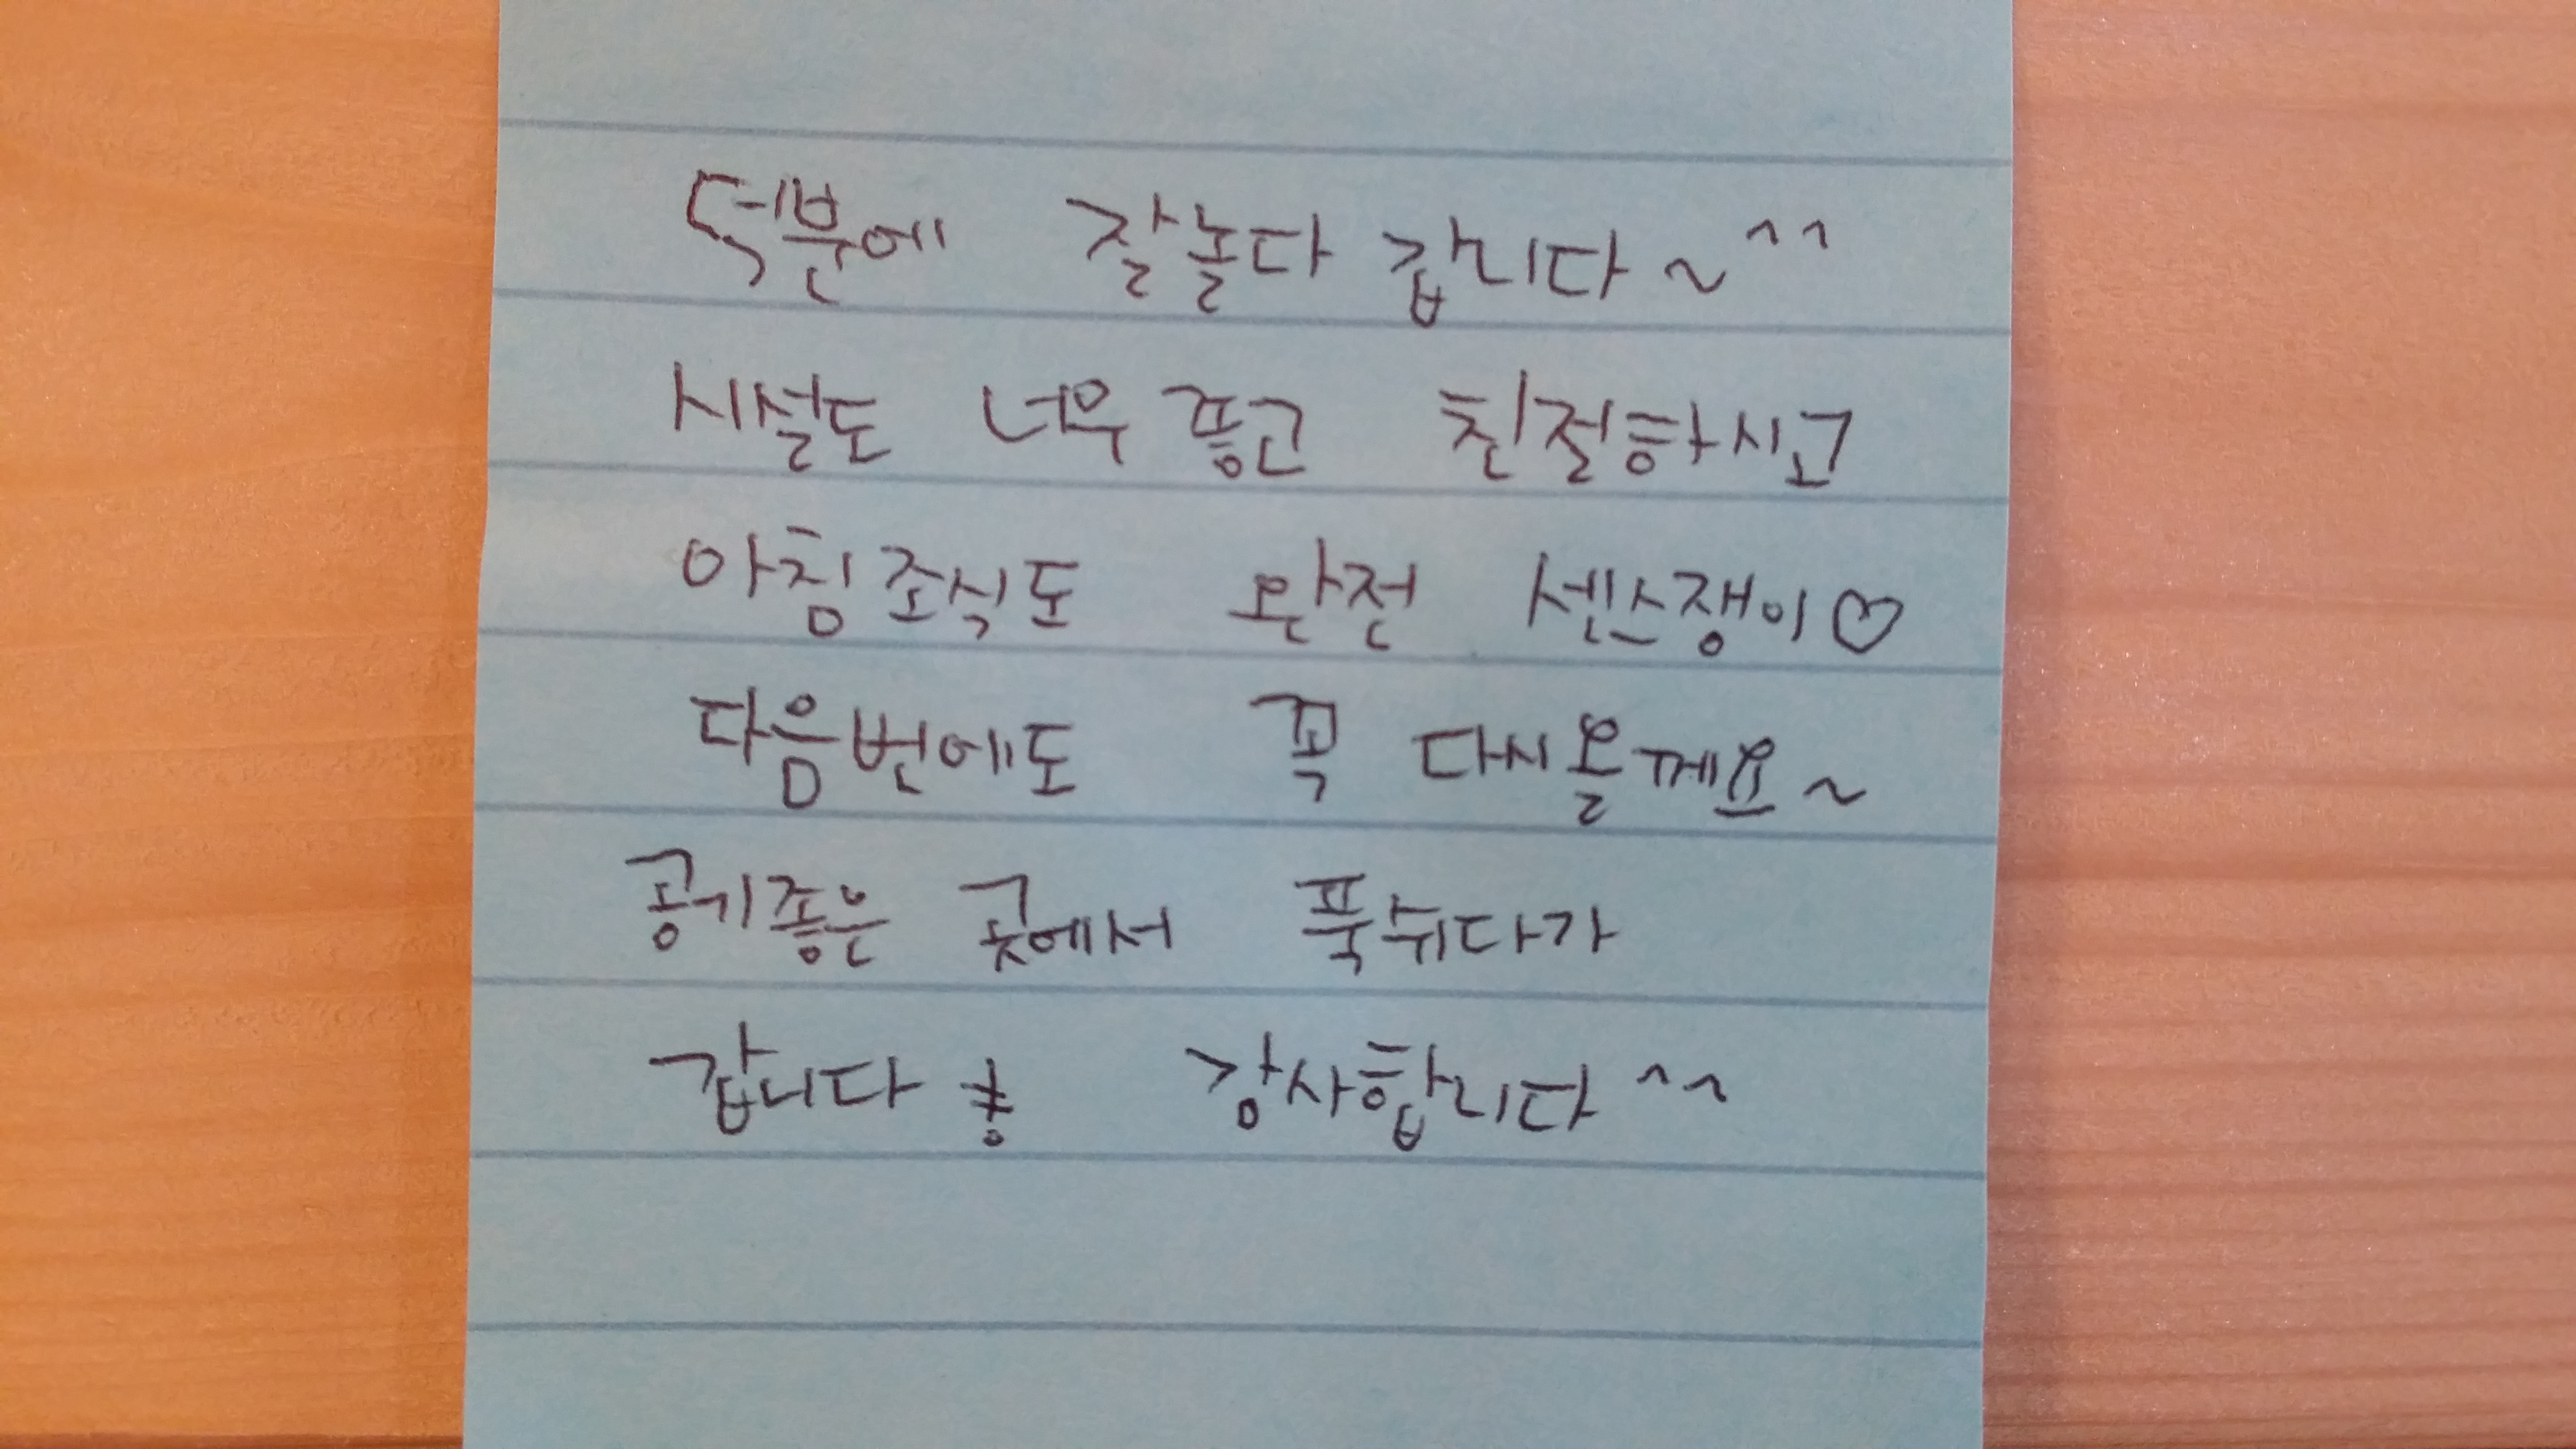 덕분에 잘놀다 갑니다~^^
시설도 너무 좋고 친절하시고
아침조식도 완전 센스쟁이♡
다음번에도 꼭 다시올께요~
공기좋은 곳에서 푹쉬다가
갑니다 총총 감사합니다^^